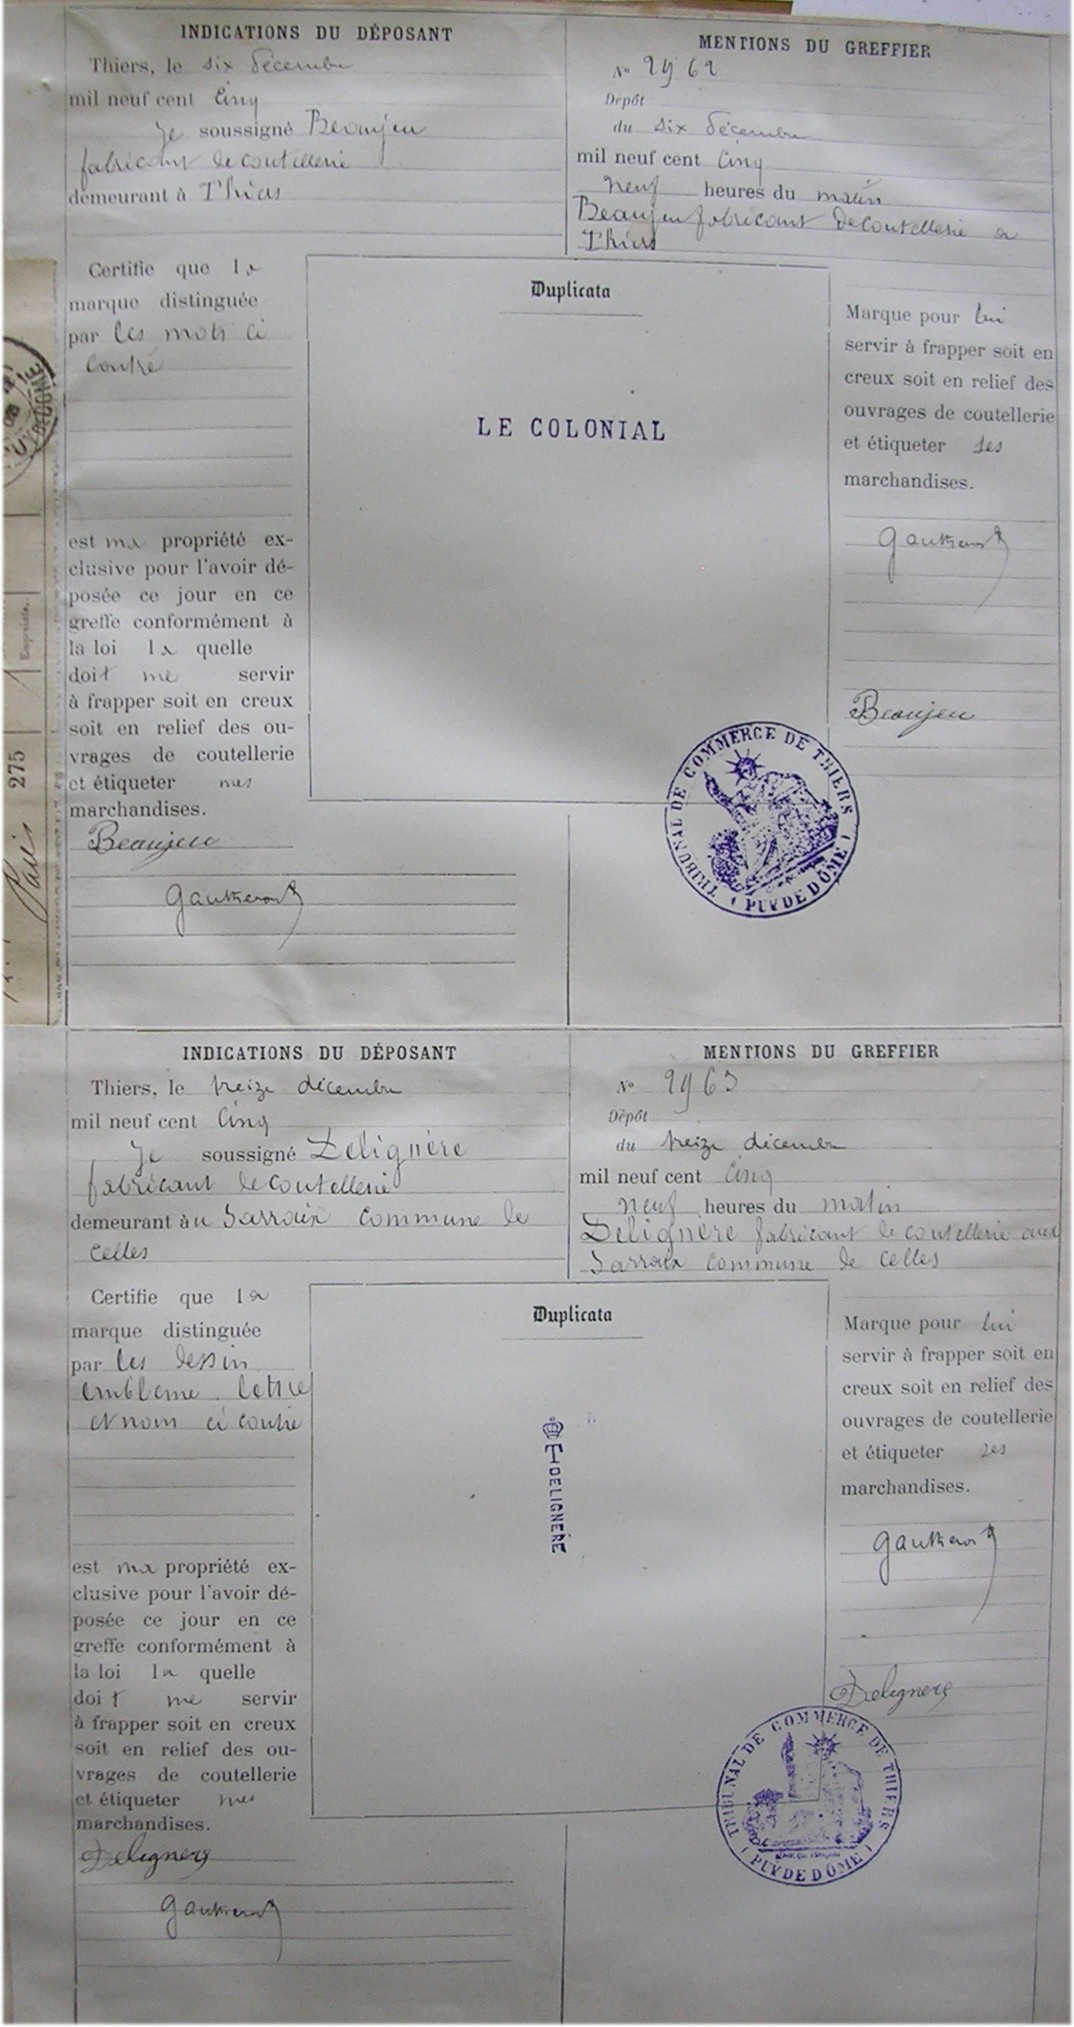 INDICATIONS DU DÉPOSANT
Thiers, le six décembre
mil neuf cent cinq
Je soussigné Beaujeu
fabricant de coutellerie
demeurant à Thiers
MENTIONS DU GREFFIER
N° 2962
Dépôt
du six décembre
mil neuf cent cinq
neuf heures du matin
Beaujeu fabricant de coutellerie a
Thiers
Certifie que la
marque distinguée
par les mots ci
contre
est ma propriété ex-
clusive pour l'avoir dé-
posée ce jour en ce
greffe conformément à
la loi la quelle
doit me servir
à frapper soit en creux
soit en relief des ou-
vrages de coutellerie
et étiqueter mes
marchandises.
Beaujeu
Duplicata
LE COLONIAL
Marque pour lui
servir à frapper soit en
creux soit en relief des
ouvrages de coutellerie
et étiqueter ses
marchandises.
Beaujeu
TRIBUNAL DE COMMERCE DE THIERS
(PUY DE DÔME)
275
Paris
INDICATIONS DU DÉPOSANT
Thiers, le treize décembre
mil neuf cent cinq
Je soussigné Delignère
fabricant de coutellerie
demeurant au Sarraix commune de
Celles
MENTIONS DU GREFFIER
N° 2963
Dépôt
du treize décembre
mil neuf cent cinq
neuf heures du matin
Delignère fabricant de coutellerie aux
Sarraix commune de Celles
Certifie que la
marque distinguée
par les dessin
emblème lettre
et nom ci contre
est ma propriété ex-
clusive pour l'avoir dé-
posée ce jour en ce
greffe conformément à
la loi la quelle
doit me servir
à frapper soit en creux
soit en relief des ou-
vrages de coutellerie
et étiqueter mes
marchandises.
Delignere
Duplicata
T DELIGNÈRE
Marque pour lui
servir à frapper soit en
creux soit en relief des
ouvrages de coutellerie
et étiqueter ses
marchandises.
Delignere
TRIBUNAL DE COMMERCE DE THIERS
(PUY DE DÔME)